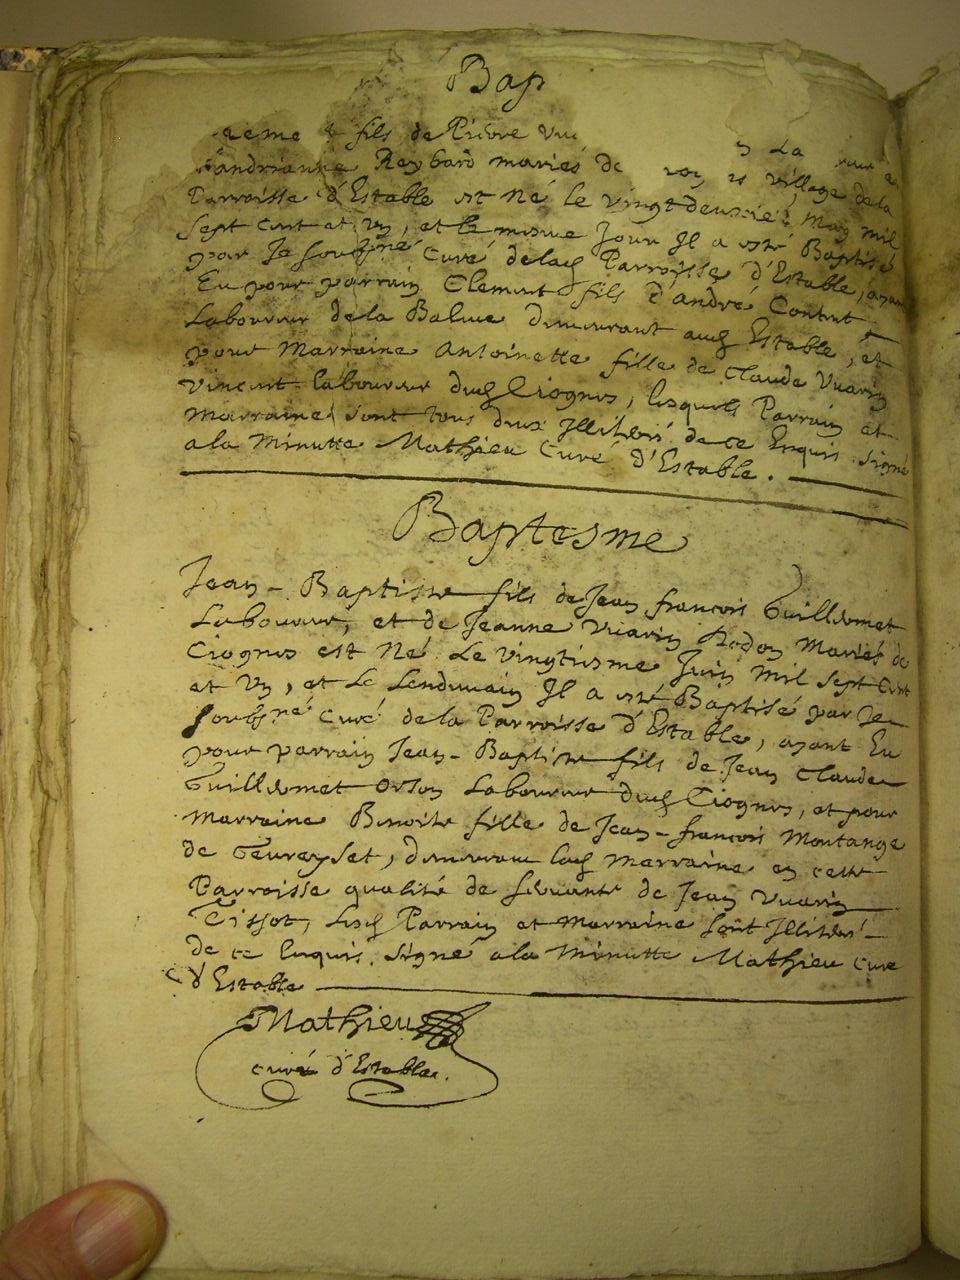 Bap
fils de Pierre
d'andrianne Reybard mariés de village de la
Parroisse d'Estable est Né le vingt deuxie May mil
Sept cent et un, et le mesme Jour Il a esté Baptisé
par Je soubsné Curé de lad Parroisse d'Estable, ayant
Eu pour parrain Clement fils d'andré Contet
Laboureur de la Balme demeurant aud Estable, et
pour Marraine Antoinette fille de Claude Vuarin
Vincent laboureur dud Ciognes, lesquels Parrain et
Marraine sont tous deux Illiterés de ce Enquis. signé
a la Minutte Mathieu Curé d'Estable.
Baptesme
Jean-Baptiste fils de Jean francois Guillermet
Laboureur, et de Jeanne Vuarin Rodon Mariés de
Ciognes est Né Le vingtiesme Juin Mil Sept Cent
et Un, et Le Lendemain Il a esté Baptisé par Je
soubsné curé de la Parroisse d'Estable, ayant Eu
pour parrain Jean-Baptiste fils de Jean Claude
Guillermet Orson Laboureur dud Ciognes, et pour
Marraine Benoite fille de Jean-francois Montange
de Gevreyset, demeurant lad Marraine en cette
Parroisse qualité de servante de Jean Vuarin
Tissot, Lesd Parrain et Marraine sont Illiterés
de ce Enquis. signé a la Minutte Mathieu curé
d'Estable
Mathieu
curé d'Estable.